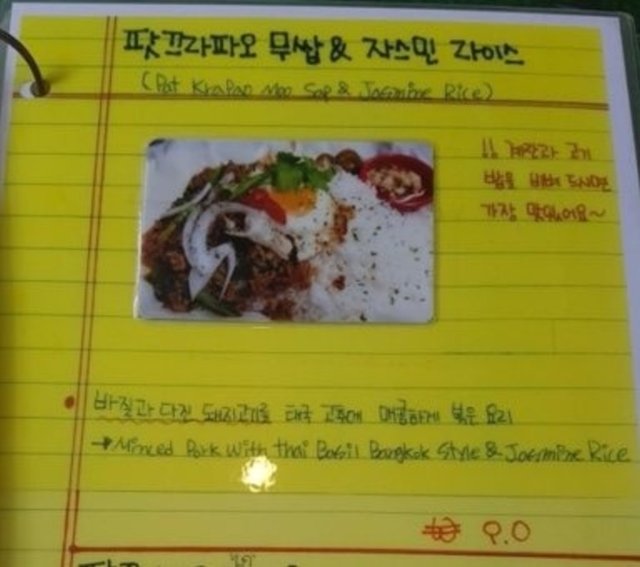 팟끄라파오 무쌉 & 자스민 라이스
(Pat Krapao Moo Sap & Jasmine Rice)
!! 계란과 고기
밥을 비벼 드시면
가장 맛있어요~
바질과 다진 돼지고기를 태국 고추에 매콤하게 볶은 요리
→ Minced Pork with thai Basil Bangkok Style & Jasmine Rice
9.0